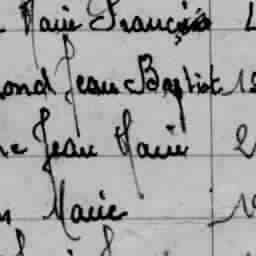 Marie François
ond Jean Baptist 13
Jean Marie 2
Marie 1